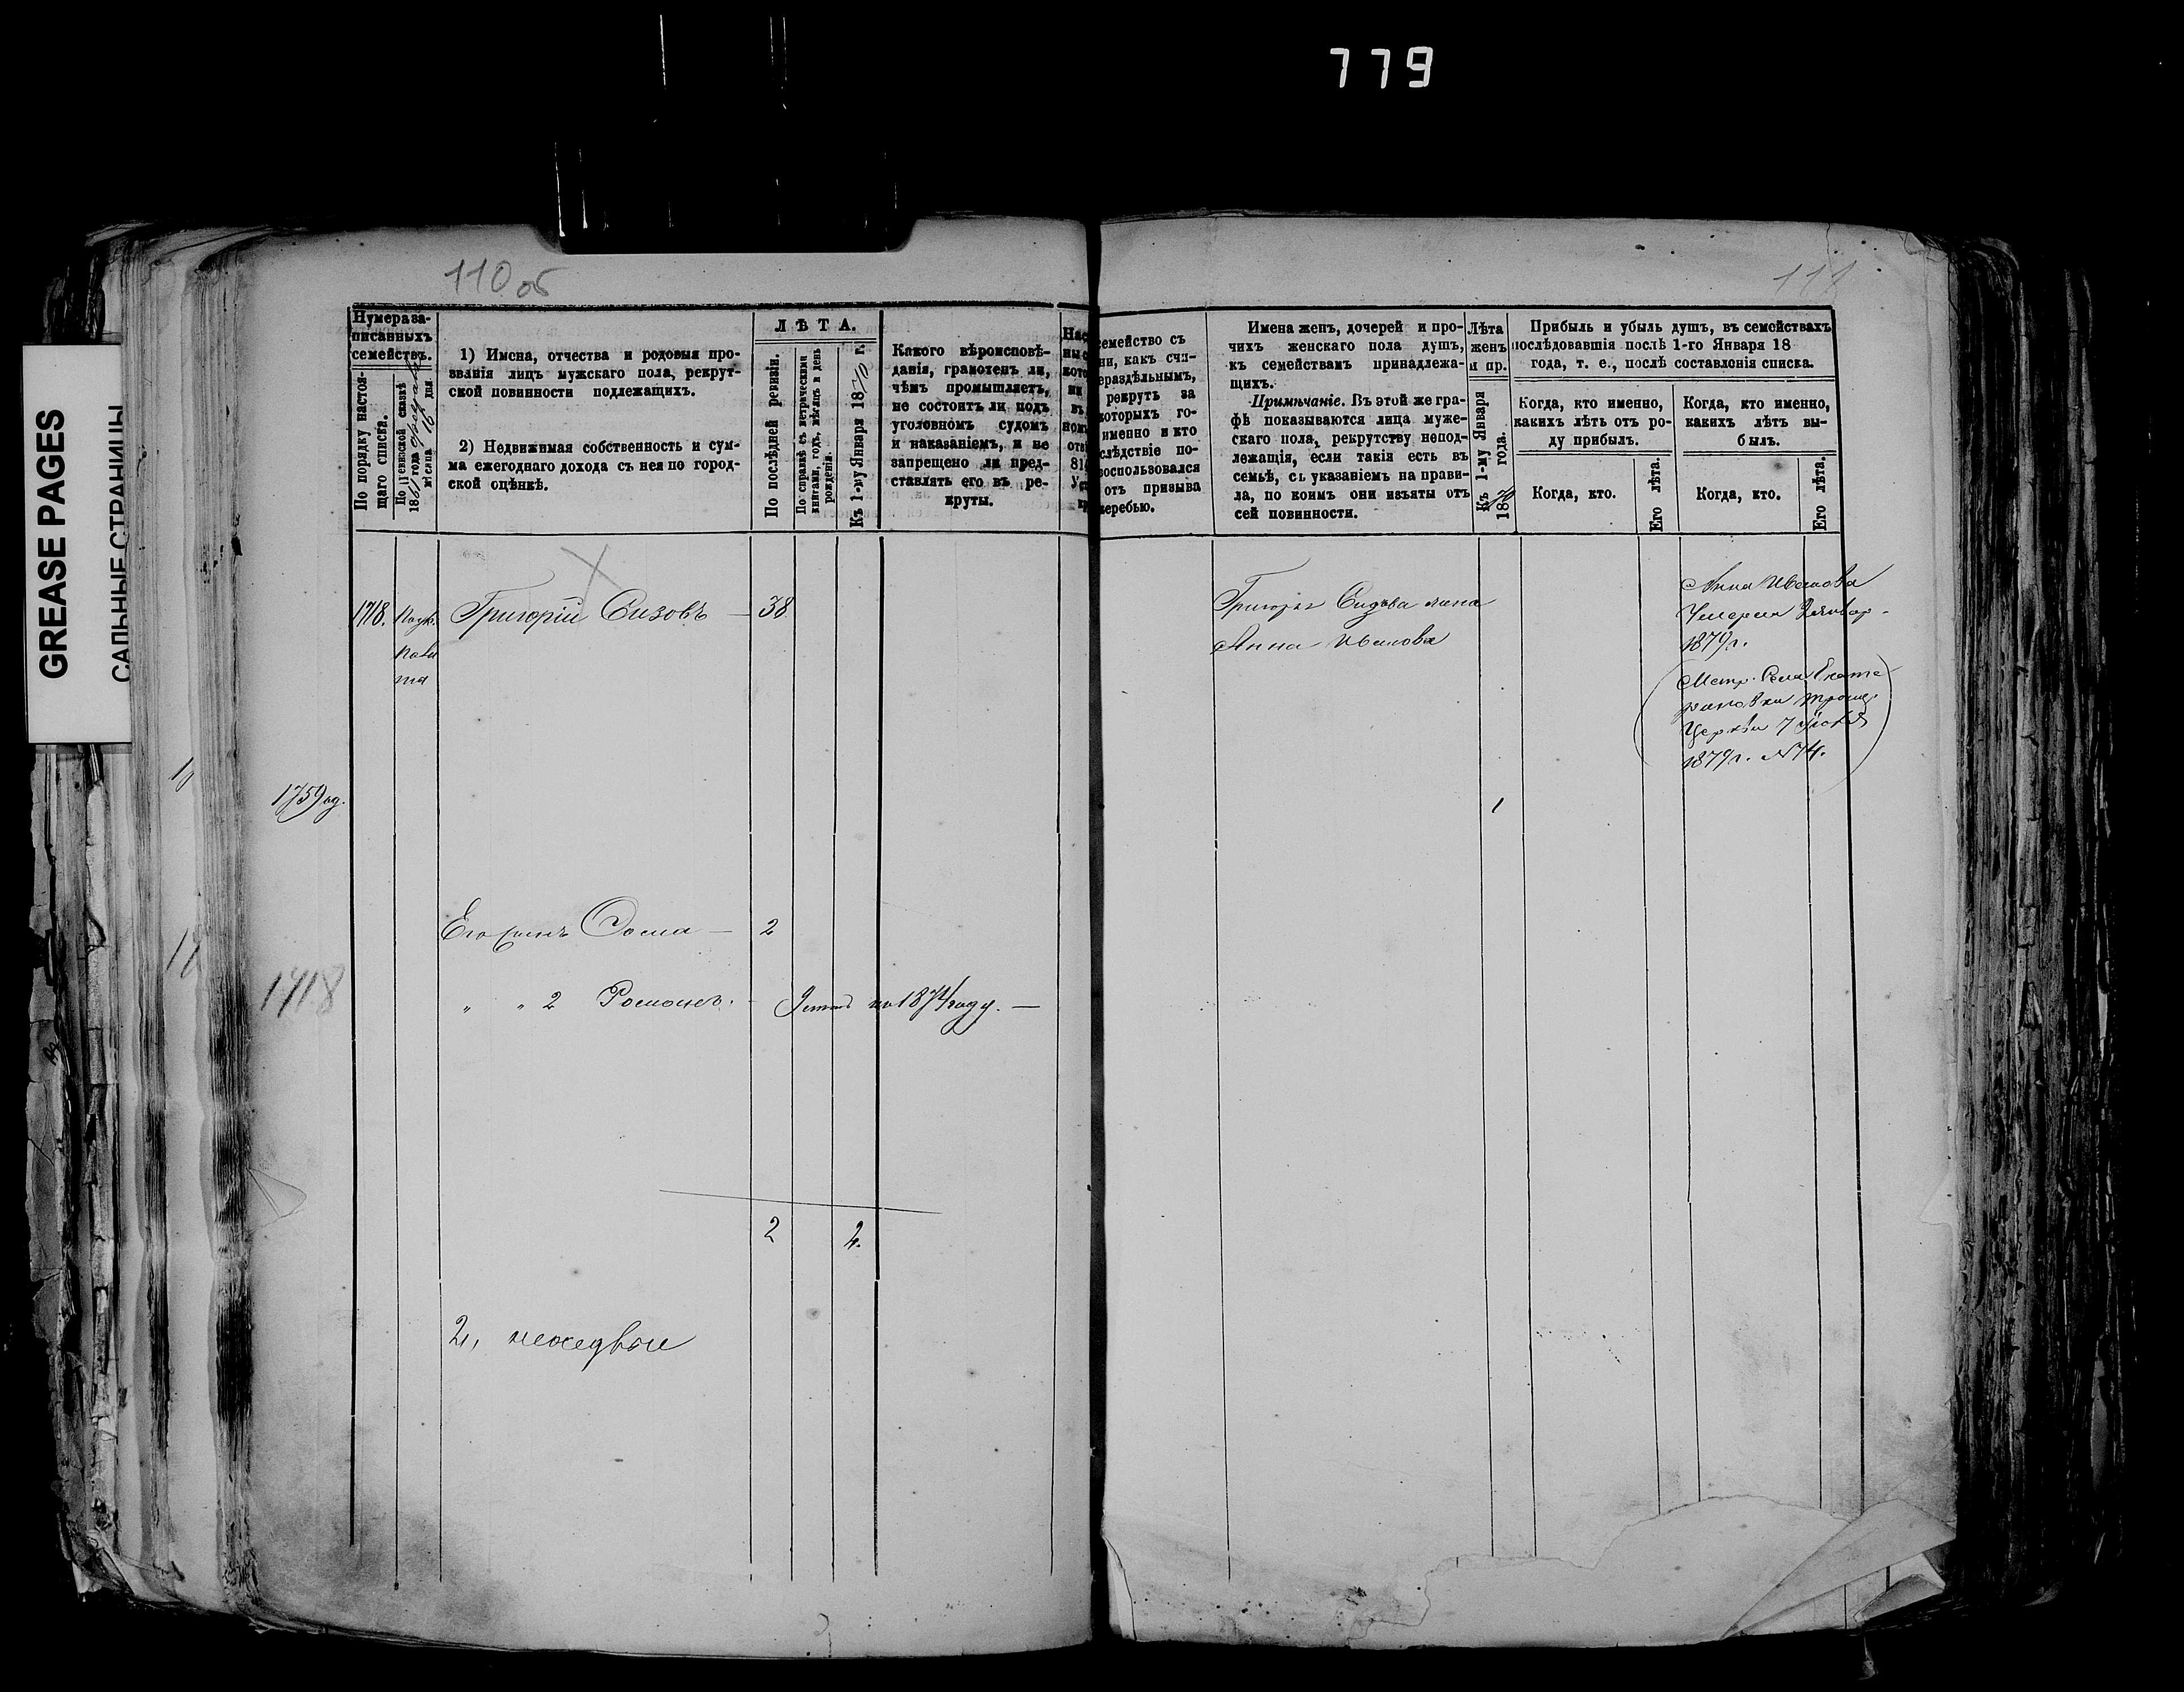 779
GREASE PAGES
САЛЬНЫЕ СТРАНИЦЫ
110 об
Нумера за-
писанныхъ
семействъ.
По порядку настоя-
щаго списка.
По ревизской сказкѣ
18 года
мѣсяца дня.
1) Имена, отчества и родовыя про-
званія лицъ мужскаго пола, рекрут-
ской повинности подлежащихъ.
2) Недвижимая собственность и сум-
ма ежегоднаго дохода съ нея по город-
ской оцѣнкѣ.
ЛѢТА.
По послѣдней ревизіи.
По справкѣ съ метрическими
книгами, годъ, мѣсяцъ и день
рожденія.
Къ 1-му Января 1870 г.
Какого вѣроисповѣ-
данія, грамотенъ ли,
чѣмъ промышляетъ,
не состоитъ ли подъ
уголовномъ судомъ
и наказаніемъ, и не
запрещено ли пред-
ставлять его въ ре-
круты.
1718.
Григорій Сизовъ — 38
1759
Его сынъ — 2
1718
" " 2 Романъ. по 1874 году. —
2 2.
2,
111
семейство съ
ни, какъ счи-
ераздѣльнымъ,
рекрутъ за
которыхъ го-
именно и кто
слѣдствіе по-
воспользовался
отъ призыва
жеребью.
Имена женъ, дочерей и про-
чихъ женскаго пола душъ,
къ семействамъ принадлежа-
щихъ.
Примѣчаніе. Въ этой же гра-
фѣ показываются лица муже-
скаго пола, рекрутству непод-
лежащія, если такія есть въ
семьѣ, съ указаніемъ на прави-
ла, по коимъ они изъяты отъ
сей повинности.
Лѣта
женъ
и пр.
Къ 1-му Января
1870 года.
Прибыль и убыль душъ, въ семействахъ
послѣдовавшія послѣ 1-го Января 18
года, т. е., послѣ составлонія списка.
Когда, кто именно,
какихъ лѣтъ отъ ро-
ду прибылъ.
Когда, кто именно,
какихъ лѣтъ вы-
былъ.
Когда, кто.
Его лѣта.
Когда, кто.
Его лѣта.
Григорія Сизова жена
Анна Иванова
1
Анна Иванова
1879 г.
(Метр. села Екате
риновки Троиц.
Церкви 7
1879 г. №74.)